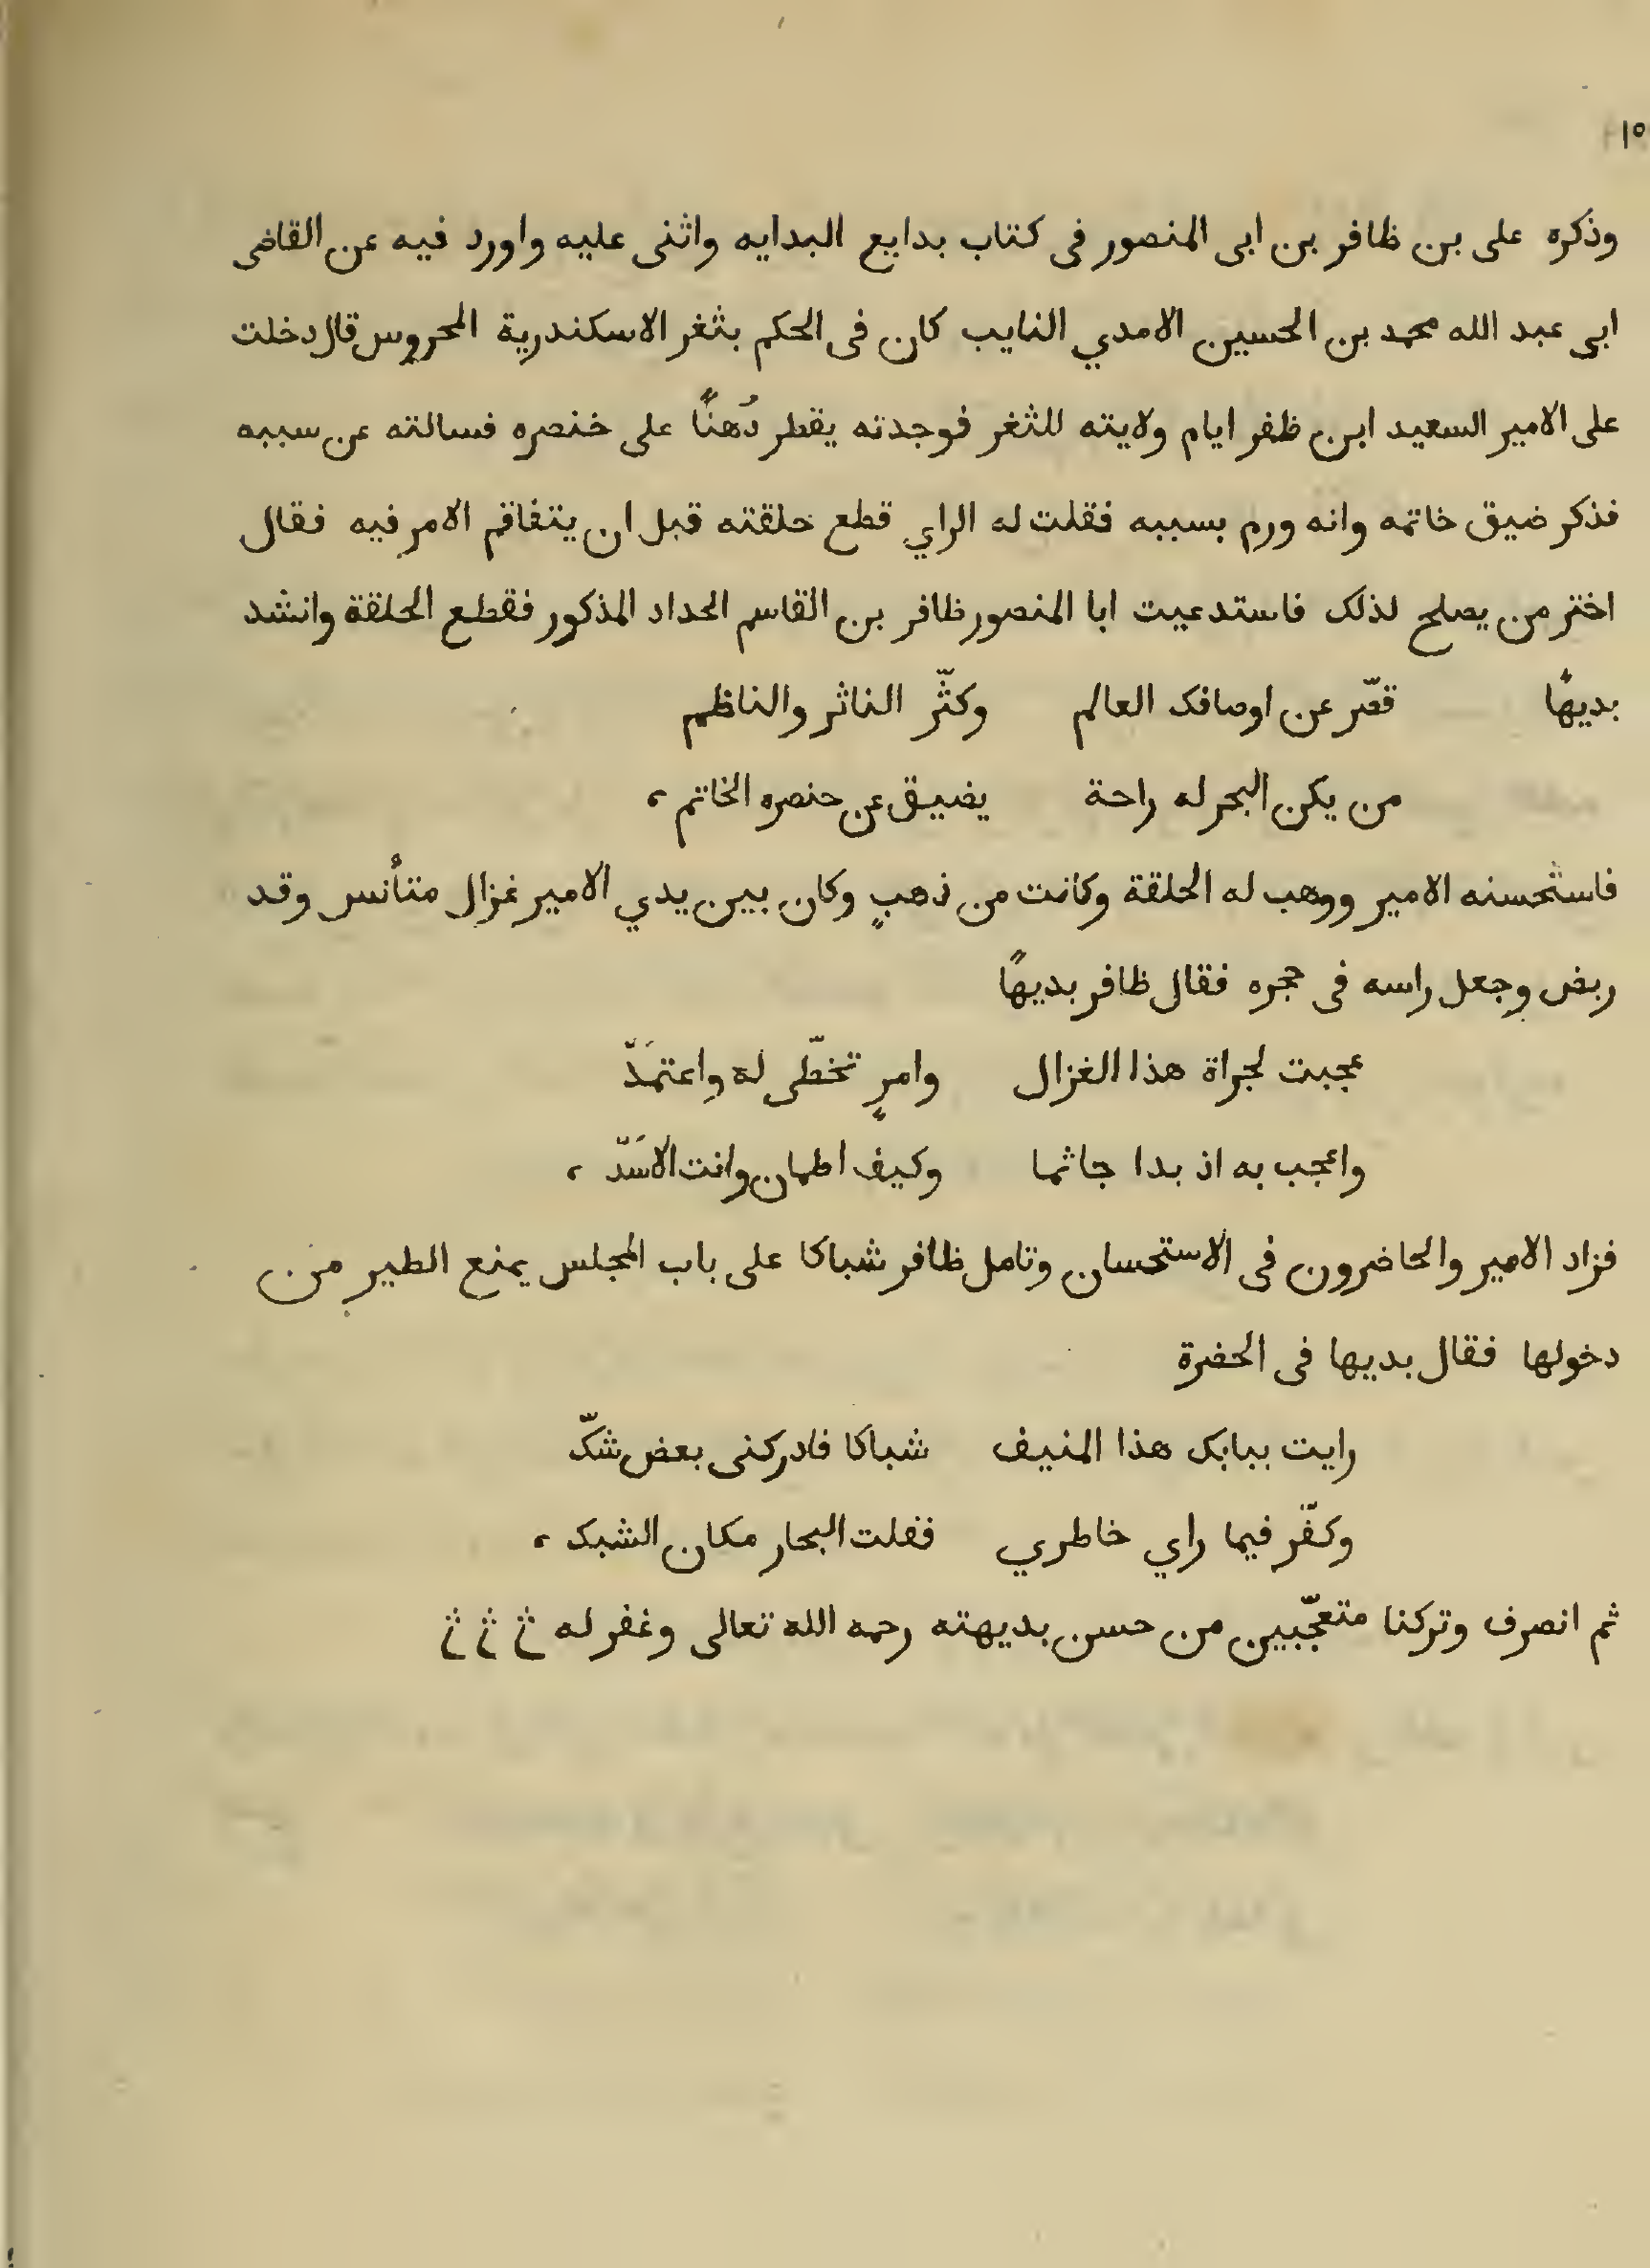 ١٥
وذكره على بن ظافر بن ابى المنصور فى كتاب بدايع البدايه واثنى عليه واورد فيه عن القاضى
ابى عبد الله محمد بن الحسين الامدي النايب كان فى الحكم بثغر الاسكندرية المحروس قال دخلت
على الامير السعيد ابن ظفر ايام ولايته للثغر فوجدته يقطر دُهنًا على خنصره فسالته عن سببه
فذكر ضيق خاتمه وانه ورم بسببه فقلت له الراي قطع حلقته قبل ان يتفاقم الامر فيه فقال
اختر من يصلح لذلك فاستدعيت ابا المنصور ظافر بن القاسم الحداد المذكور فقطع الحلقة وانشد
بديهًا قصّر عن اوصافك العالم وكثّر الناثر والناظم
من يكن البحر له راحة يضيق عن حنصره الخاتم
فاستحسنه الامير ووهب له الحلقة وكانت من ذهبٍ وكان بين يدي الامير غزال متأنس وقد
ربض وجعل راسه فى حجره فقال ظافر بديهًا
عجبت لجراة هذا الغزال وامرٍ تخطّى له واعتمَدّ
واعجب به اذ بدا جاثما وكيف اطمان وانت الاسَدّ
فزاد الامير والحاضرون فى الاستحسان وتامل ظافر شباكا على باب المجلس يمنع الطير من
دخولها فقال بديها فى الحضرة
رايت ببابك هذا المنيف شباكا فادركنى بعض شكّ
وكفّر فيما راي خاطري فقلت البحار مكان الشبك
ثم انصرف وتركنا متعجّبين من حسن بديهته رحمه الله تعالى وغفر له